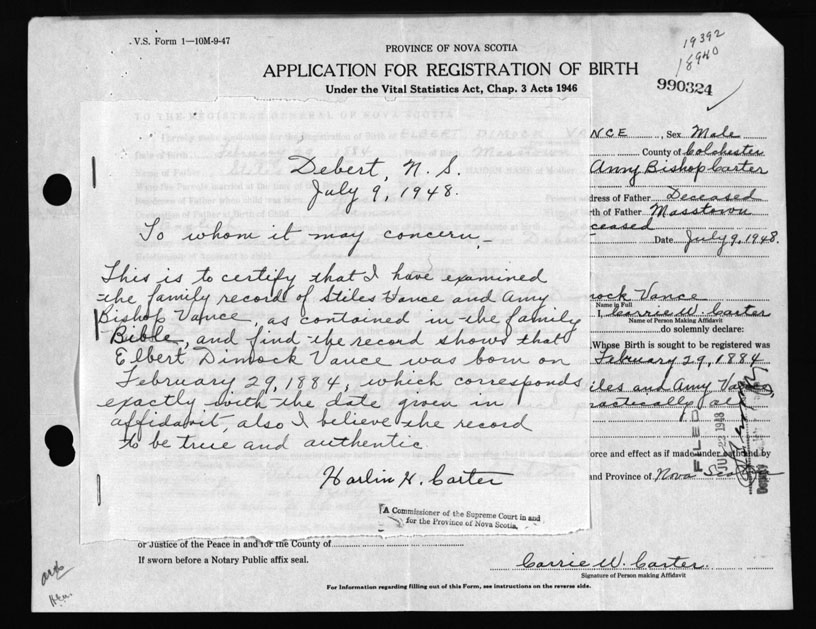 V.S. Form 1—10M-9-47
19392
18940
PROVINCE OF NOVA SCOTIA
APPLICATION FOR REGISTRATION OF BIRTH
990324
Under the Vital Statistics Act, Chap. 3 Acts 1946
NCE, Sex Male
County of Colchester
Amy Bishop Carter
dress of Father Deceased
rth of Father Masstown
ceased
Date July 9, 1948.
Debert, N. S.
July 9, 1948.
To whom it may concern,-
This is to certify that I have examined
the family record of Stiles Vance and Amy
Bishop Vance, as contained in the family
Bible, and find the record shows that
Elbert Dimock Vance was born on
February 29, 1884, which corresponds
exactly with the date given in
affidavit, also I believe the record
to be true and authentic
Harlin H. Carter
A Commissioner of the Supreme Court in and
for the Province of Nova Scotia.
mock Vance
Name in Full
I, Carrie W. Carter
Name of Person Making Affidavit
do solemnly declare:
Whose Birth is sought to be registered was
February 29, 1884
iles and Amy Vance
practically all
orce and effect as if made under oath and by
nd Province of Nova Scotia
FILED
JUL 22 1948
Deputy
or Justice of the Peace in and for the County of
If sworn before a Notary Public affix seal.
Carrie W. Carter.
Signature of Person making Affidavit
For Information regarding filling out of this Form, see instructions on the reverse side.